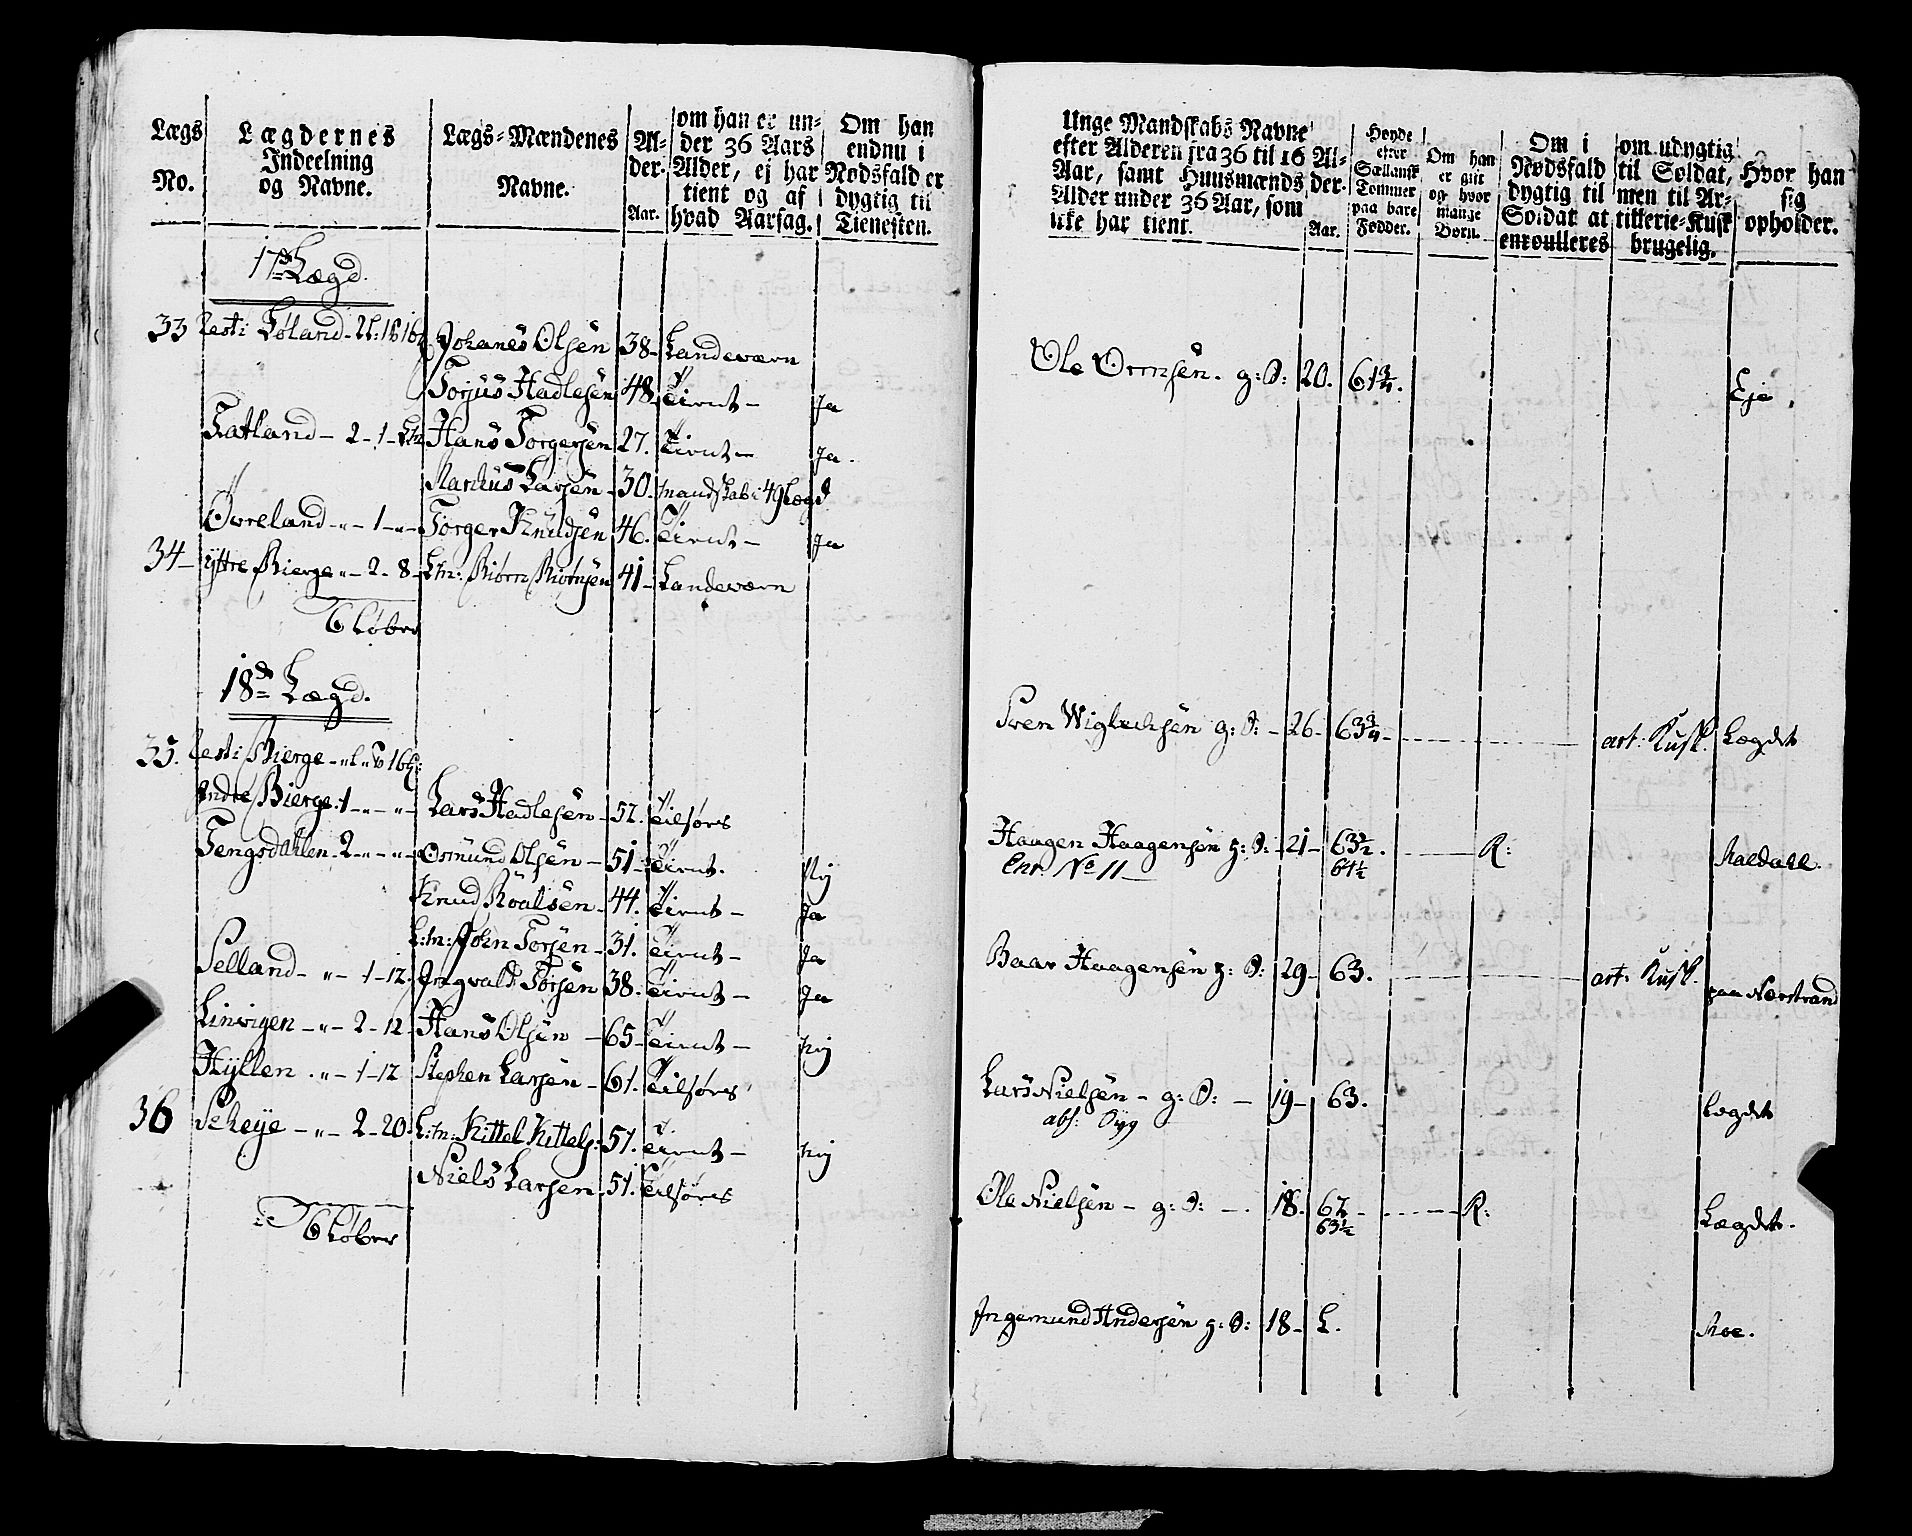 Lægs No.
Lægdernes Indeelning og Navne.
Lægs-Mændenes Navne.
Al-der. Aar.
om han er un-der 36 Aars Alder, ej har tient og af hvad Aarsag.
Om han endnu i Nødsfald er dygtig til Tienesten.
17de Lægd.
33 Resti Løland - Johanes Olsen 38 - Landeværn
Torjus Hadlesen 48 Tient - Ja
Fatland - 2 - 1 - Hans Torgersen 27. Tient - Ja.
Markus Larsen - 30. mandskab i 49 Lægd
Øvreland - " - 1 - " - Torger Knudsen 46. Tient - Ja
34 - yttre Bierge " - 2 - 8 - L:m: Biørn Biørnsen 41 - Landeværn
6 Løber
18de Lægd.
35. Resti Bierge
Indre Bierge. 1 - " - " - Lars Hadlesen - 52. Tilførs
Tengsdahlen - 2 - " - " - Osmund Olsen - 51 - Tient. Nej
Knud Roalsen - 44. Tient - Ja
L:m: John Torsen - 31. Tient - Ja
Selland - " - 1 - 12. Ingvald Torsen 38. Tient - Ja
Linvigen - " - 2 - 12 - Hans Olsen - 65 - Tient - Nej
Hyllen . " - 1 - 12 Stephen Larsen - 61. Tilførs
36 Seheye - " - 2 - 20. L:m: Kittel Kittels: 57. Tient - Nej
Niels Larsen - 51. Tilførs
6 Løber
Unge Mandskabs Navne efter Alderen fra 36 til 16 Aar, samt Huusmænds Alder under 36 Aar, som ikke har tient.
Al-der. Aar.
Høyde efter Siællansk Tommer paa bare Fødder.
Om han er gift og hvor mange Børn.
Om i Nødsfald dygtig til Soldat at enroulleres
om udygtig til Soldat, men til Ar-tillerie-Kusk brugelig.
Hvor han sig opholder.
Ole Ormsen. g: S: 20. 61 3/4. Eje.
Sven Wiglechsen g: S: - 26 - 63 3/4 - art: Kusk. Lægdet
Haagen Haagensen g: S: - 21 - 63 1/2. R: Maldall.
Enr. No 11 - 64 1/2
Baar Haagensen g: S: 29 - 63. art: Kusk. paa Nærstrand
Lars Nielsen - g: S: - 19 - 63. Lægdet
abs: Syg
Ole Nielsen - g: S: - 18 - 62 - R: Lægdet.
63 1/2
Ingemund Andersen g: S: 18 - L. Moe.